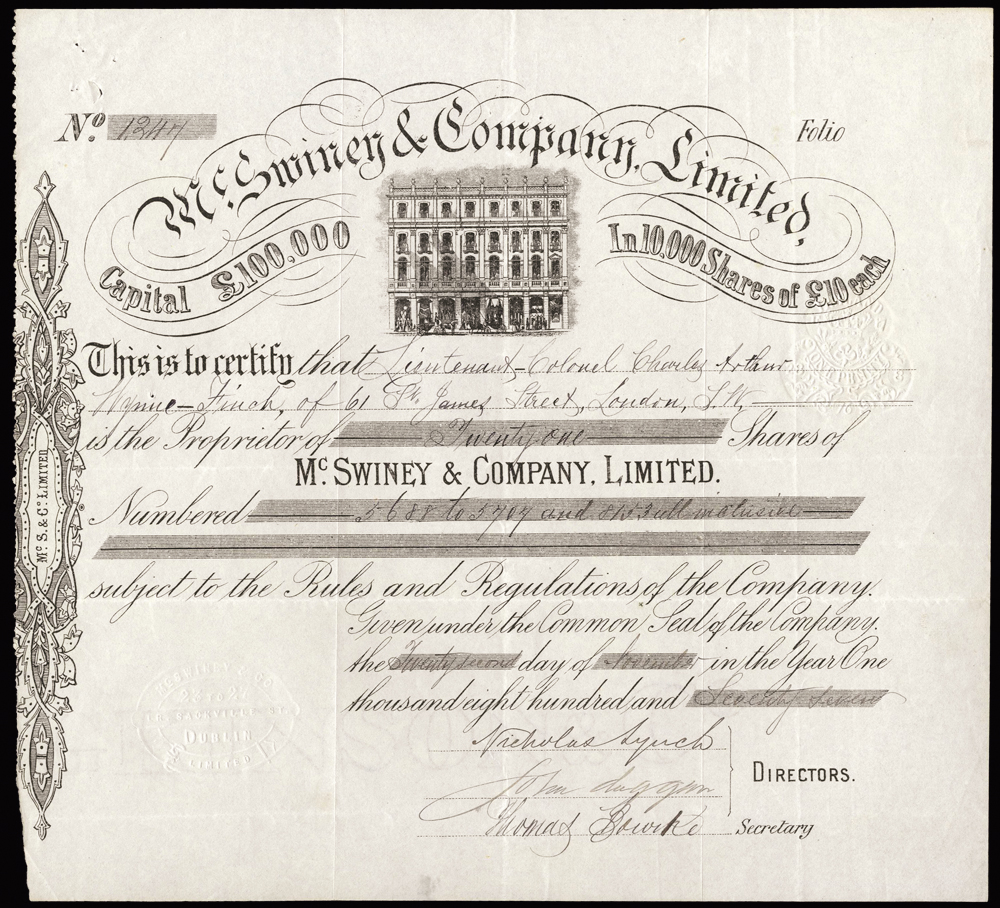 No. 1347
Folio
McSwiney & Company, Limited,
Capital £100,000
In 10,000 Shares of £10 each
This is to certify that Lieutenant-Colonel Charles Arthur
Wynne-Finch, of 61 St. James Street, London, S.W.
is the Proprietor of Twenty one Shares of
Mc SWINEY & COMPANY, LIMITED.
Numbered 5688 to 5707 and all inclusive
subject to the Rules and Regulations of the Company.
Given under the Common Seal of the Company.
the Twenty second day of November in the Year One
thousand eight hundred and Seventy Seven
Nicholas Lynch
John Duggan
DIRECTORS.
Thomas Bourke Secretary
Mc. S. & Co. LIMITED
McSWINEY & CO
23 TO 27
SACKVILLE ST.
DUBLIN
LIMITED